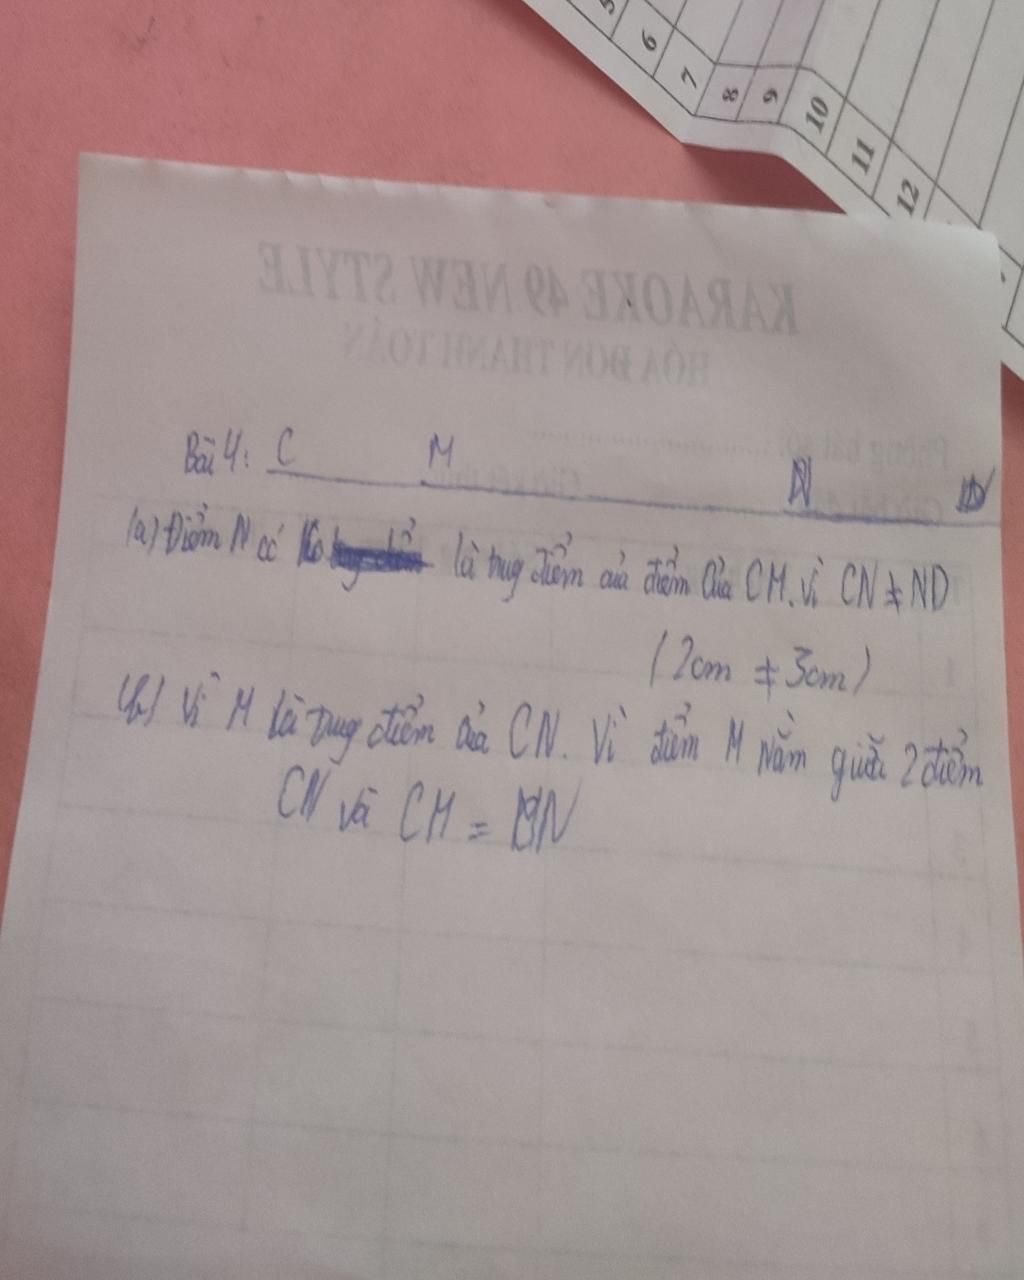 5
6
7
8
9
10
11
12
KARAOKE 49 NEW STYLE
HÓA ĐƠN THANH TOÁN
Phòng hát số:
Bài 4: C M N D
(a) Điểm N có ko là trug điểm của điểm của CM. vì CN ≠ ND
(2cm ≠ 3cm)
(b) Vì M là trug điểm của CN. Vì điểm M nằm giữa 2 điểm
CN và CM = MN